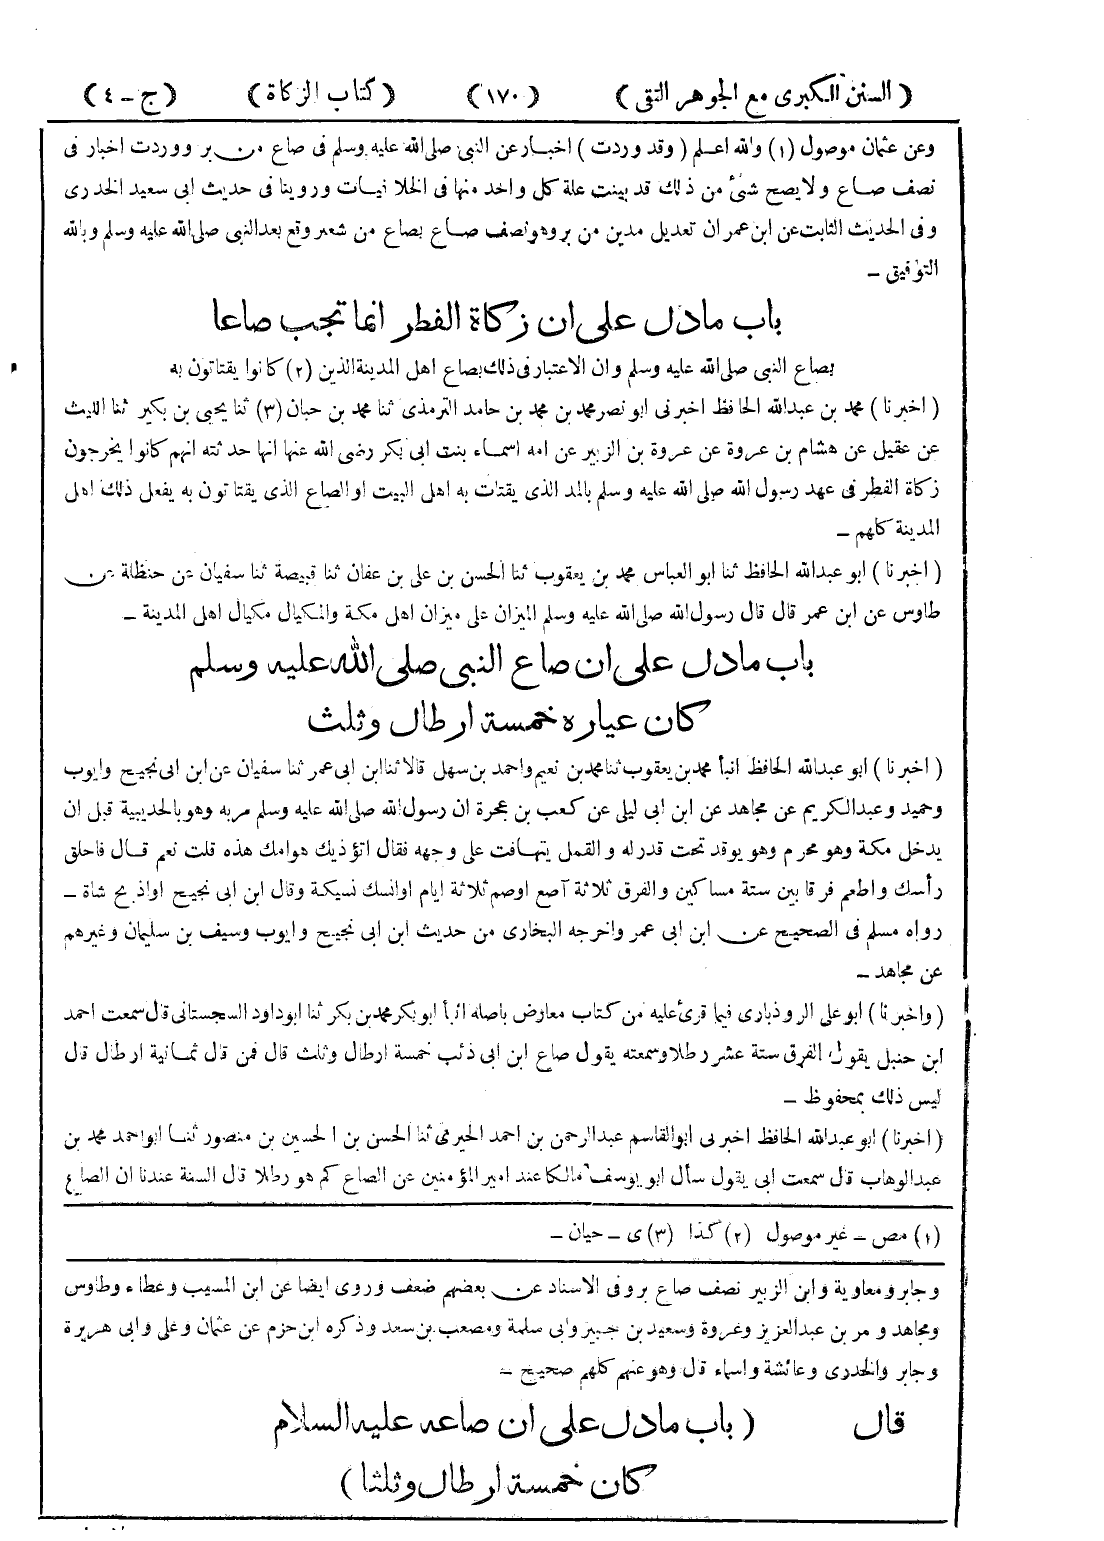 ( السنن الكبرى مع الجوهر النقى ) ( ١٧٠ ) ( كتاب الزكاة ) ( ج – ٤ )
وعن عثمان موصول (١) والله اعلم ( وقد وردت ) اخبار عن النبى صلى الله عليه وسلم فى صاع من بر ووردت اخبار فى
نصف صاع ولا يصح شئ من ذلك قد بينت علة كل واحد منها فى الخلافيات وروينا فى حديث ابى سعيد الخدرى
وفى الحديث الثابت عن ابن عمر ان تعديل مدين من بر وهو نصف صاع بصاع من شعير وقع بعد النبى صلى الله عليه وسلم وبالله
التوفيق –
باب مادل على ان زكاة الفطر انما تجب صاعا
بصاع النبى صلى الله عليه وسلم وان الاعتبار فى ذلك بصاع اهل المدينة الذين (٢) كانوا يقتاتون به
( اخبرنا ) محمد بن عبدالله الحافظ اخبرنى ابو نصر محمد بن محمد بن حامد الترمذى ثنا محمد بن حبان (٣) ثنا يحيى بن بكير ثنا الليث
عن عقيل عن هشام بن عروة عن عروة بن الزبير عن امه اسماء بنت ابى بكر رضى الله عنها انها حدثته انهم كانوا يخرجون
زكاة الفطر فى عهد رسول الله صلى الله عليه وسلم بالمد الذى يقتات به اهل البيت او الصاع الذى يقتاتون به يفعل ذلك اهل
المدينة كلهم –
( اخبرنا ) ابو عبدالله الحافظ ثنا ابو العباس محمد بن يعقوب ثنا الحسن بن على بن عفان ثنا قبيصة ثنا سفيان عن حنظلة عن
طاوس عن ابن عمر قال قال رسول الله صلى الله عليه وسلم الميزان على ميزان اهل مكة والمكيال مكيال اهل المدينة –
باب مادل على ان صاع النبى صلى الله عليه وسلم
كان عياره خمسة ارطال وثلث
( اخبرنا ) ابو عبدالله الحافظ انبأ محمد بن يعقوب ثنا محمد بن نعيم واحمد بن سهل قالا ثنا ابن ابى عمر ثنا سفيان عن ابن ابى نجيح وايوب
وحميد وعبدالكريم عن مجاهد عن ابن ابى ليلى عن كعب بن عجرة ان رسول الله صلى الله عليه وسلم مر به وهو بالحديبية قبل ان
يدخل مكة وهو محرم وهو يوقد تحت قدر له والقمل يتهافت على وجهه فقال اتؤذيك هوامك هذه قلت نعم قال فاحلق
رأسك واطعم فرقا بين ستة مساكين والفرق ثلاثة آصع اوصم ثلاثة ايام اوانسك نسيكة وقال ابن ابى نجيح اواذبح شاة –
رواه مسلم فى الصحيح عن ابن ابى عمر واخرجه البخارى من حديث ابن ابى نجيح وايوب وسيف بن سليمان وغيرهم
عن مجاهد –
( واخبرنا ) ابو على الروذبارى فيما قرئ عليه من كتاب معارض باصله انبأ ابو بكر محمد بن بكر ثنا ابوداود السجستانى قال سمعت احمد
ابن حنبل يقول الفرق ستة عشر رطلا وسمعته يقول صاع ابن ابى ذئب خمسة ارطال وثلث قال فمن قال ثمانية ارطال قال
ليس ذلك بمحفوظ –
( اخبرنا ) ابو عبدالله الحافظ اخبرنى ابوالقاسم عبدالرحمن بن احمد ثنا الحسن بن الحسين بن منصور ثنا ابواحمد محمد بن
عبدالوهاب قال سمعت ابى يقول سأل ابو يوسف مالكا عند امير المؤمنين عن الصاع كم هو رطلا قال السنة عندنا ان الصاع
(١) مص – غير موصول (٢) كذا (٣) ى – حيان –
وجابر ومعاوية وابن الزبير نصف صاع بر وفى الاسناد عن بعضهم ضعف وروى ايضا عن ابن المسيب وعطاء وطاوس
ومجاهد و مر بن عبدالعزيز وعروة وسعيد بن جبير وابى سلمة ومصعب بن سعد وذكره ابن حزم عن عثمان وعلى وابى هريرة
وجابر والخدرى وعائشة واسماء قال وهو عنهم كلهم صحيح –
قال ( باب مادل على ان صاعه عليه السلام
كان خمسة ارطال وثلثا )